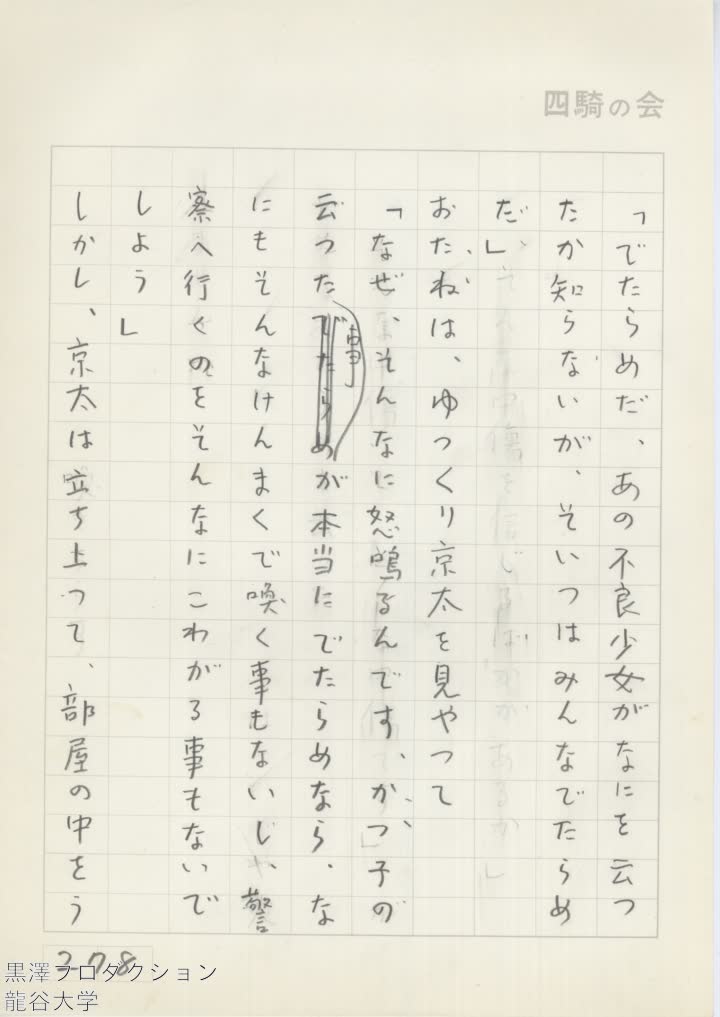 四騎の会
「でたらめだ、あの不良少女がなにを云つ
たか知らないが、そいつはみんなでたらめ
だ」
おたねは、ゆつくり京太を見やつて
「なぜ、そんなに怒鳴るんです、かつ子の
云つたでたらめ事が本当にでたらめなら、な
にもそんなけんまくで喚く事もないじや、警
察へ行くのをそんなにこわがる事もないで
しよう」
しかし、京太は立ち上つて、部屋の中をう
278
黒澤プロダクション
龍谷大学